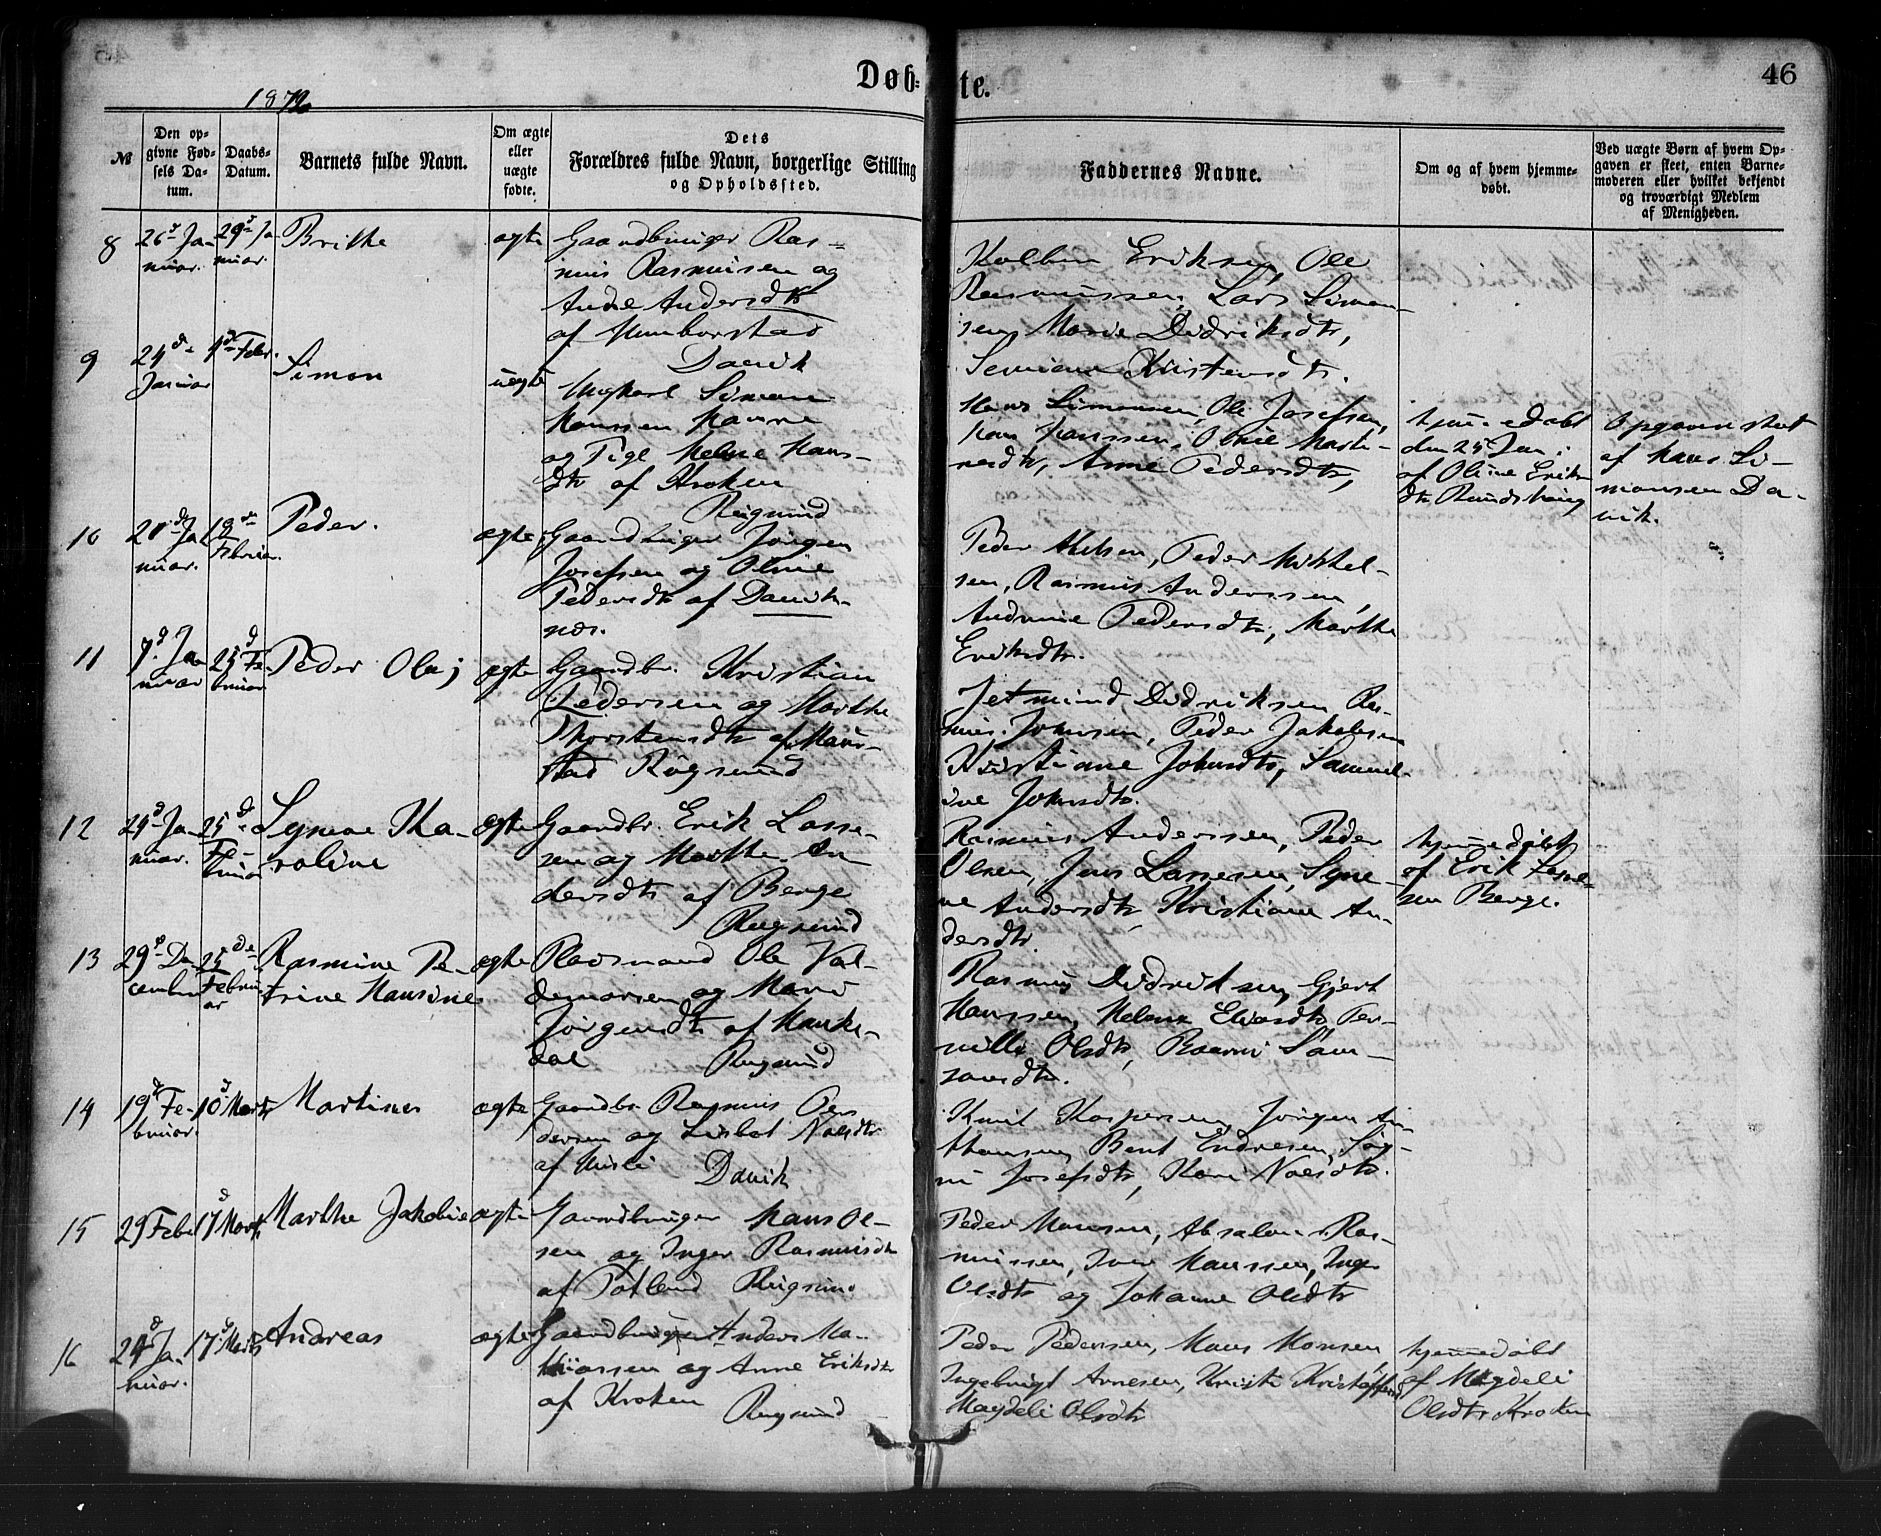 46
Døb=
te.
1872
№
Den op=
givne Fød=
sels Da=
tum.
Daabs=
Datum.
Barnets fulde Navn.
Om ægte
eller
uægte
fødte.
Dets
Forældres fulde Navn, borgerlige Stilling
og Opholdssted.
Faddernes Navne.
Om og af hvem hjemme=
døbt.
Ved uægte Børn af hvem Op=
gaven er skeet, enten Barne=
moderen eller hvilket bekjendt
og troværdigt Medlem
af Menigheden.
8
26d Ja-
nuar.
29d Ja
nuar.
Brithe
ægte
Gaardbruger Ras=
mus Rasmusen og
Andersdtr
af Humborstad
Davik
Kolben Eriksen, Ole
Rasmussen, Lars Simon-
sen, Marie Didriksdtr,
Kristensdtr.
9
24d
Januar
4d Febr.
Simon
uægte
Ungkarl Simon
Hanssen Havne
og Pige Helene Hans-
dtr af Kroken
Rugsund
Hans Simonsen, Ole Josefsen,
Hans Hanssen, Oline Marti-
nsdtr, Anne Pedersdtr,
hjemmedøbt
den 25 Jan:
af Oline Eriks
dtr
Opgaven skeet
af Hans Si-
monsen Da-
vik.
10
Ja
nuar.
18de
Februar.
Peder.
ægte
Gaardbruger Jørgen
Josefsen og Oline
Pedersdtr af Davik-
nes.
Peder Nilsen, Peder Mikkel-
sen, Rasmus Anderssen,
Andrine Pedersdtr, Marthe
Eriksdtr.
11
7d Ja
nuar
25d Fe
bruar
Peder Olaj
ægte
Gaardbr. Kristian
Pedersen og Marthe
Thorstensdtr af Maur-
stad Rugsund
Jetmund Didriksen Ras-
mus Johnsen, Peder Jakobsen
Kristiane Johnsdtr, Samuel-
ine Johnsdtr.
12
29d Ja-
nuar.
25d
Fe-
bruar
Synneve Ka-
roline
ægte
Gaardbr. Erik Lasse-
sen og Marthe An
dersdtr af Berge
Rugsund
Rasmus Anderssen, Peder
Olsen, Jens Lassesen, Syne-
ve Andersdtr, Kristiane An-
dersdtr.
hjemmedøbt
af Erik Lasse-
sen Berge.
13
29d De-
cember
25de
Febru
ar
Rasmine Pe-
trine Hansine
ægte
Pladsmand Ole Val-
demarsen og Mari
Jørgensdtr af Hauke-
dal Rugsund
Rasmus Didriksen, Gjert
Hanssen, Helene Eliasdtr, Per-
nille Olsdtr, Sam-
sonsdtr.
14
19d Fe-
bruar.
10d Marts
Martines
ægte
Gaardbr. Rasmus Pe
dersen og Lisbet Noesdtr
af Hisli Davik
Knut Kaspersen, Jørgen An-
thonsen, Bent Endresen, Sig-
ni Josefsdtr, Kari Noesdtr.
15
29 Febr
17d Marts
Marthe Jakobine
ægte
Gaardbruger Hans Ol-
sen og Inger Rasmusdtr
af Totland Rugsund
Peder Monsen, Absalon Ras-
mussen, Iver Hanssen, Inger
Olsdtr og Johanne Olsdtr
16
24d Ja-
nuar.
17d Marts
Andreas
ægte
Gaardbruger Anders Ma-
thiassen og Anne Eriksdtr
af Kroken Rugsund
Peder Pedersen, Hans Monsen,
Ingebrigt Arnesen, Kristi Kristoffersd
Magdeli Olsdtr
hjemmedøbt
af Magdeli
Olsdtr Kroken